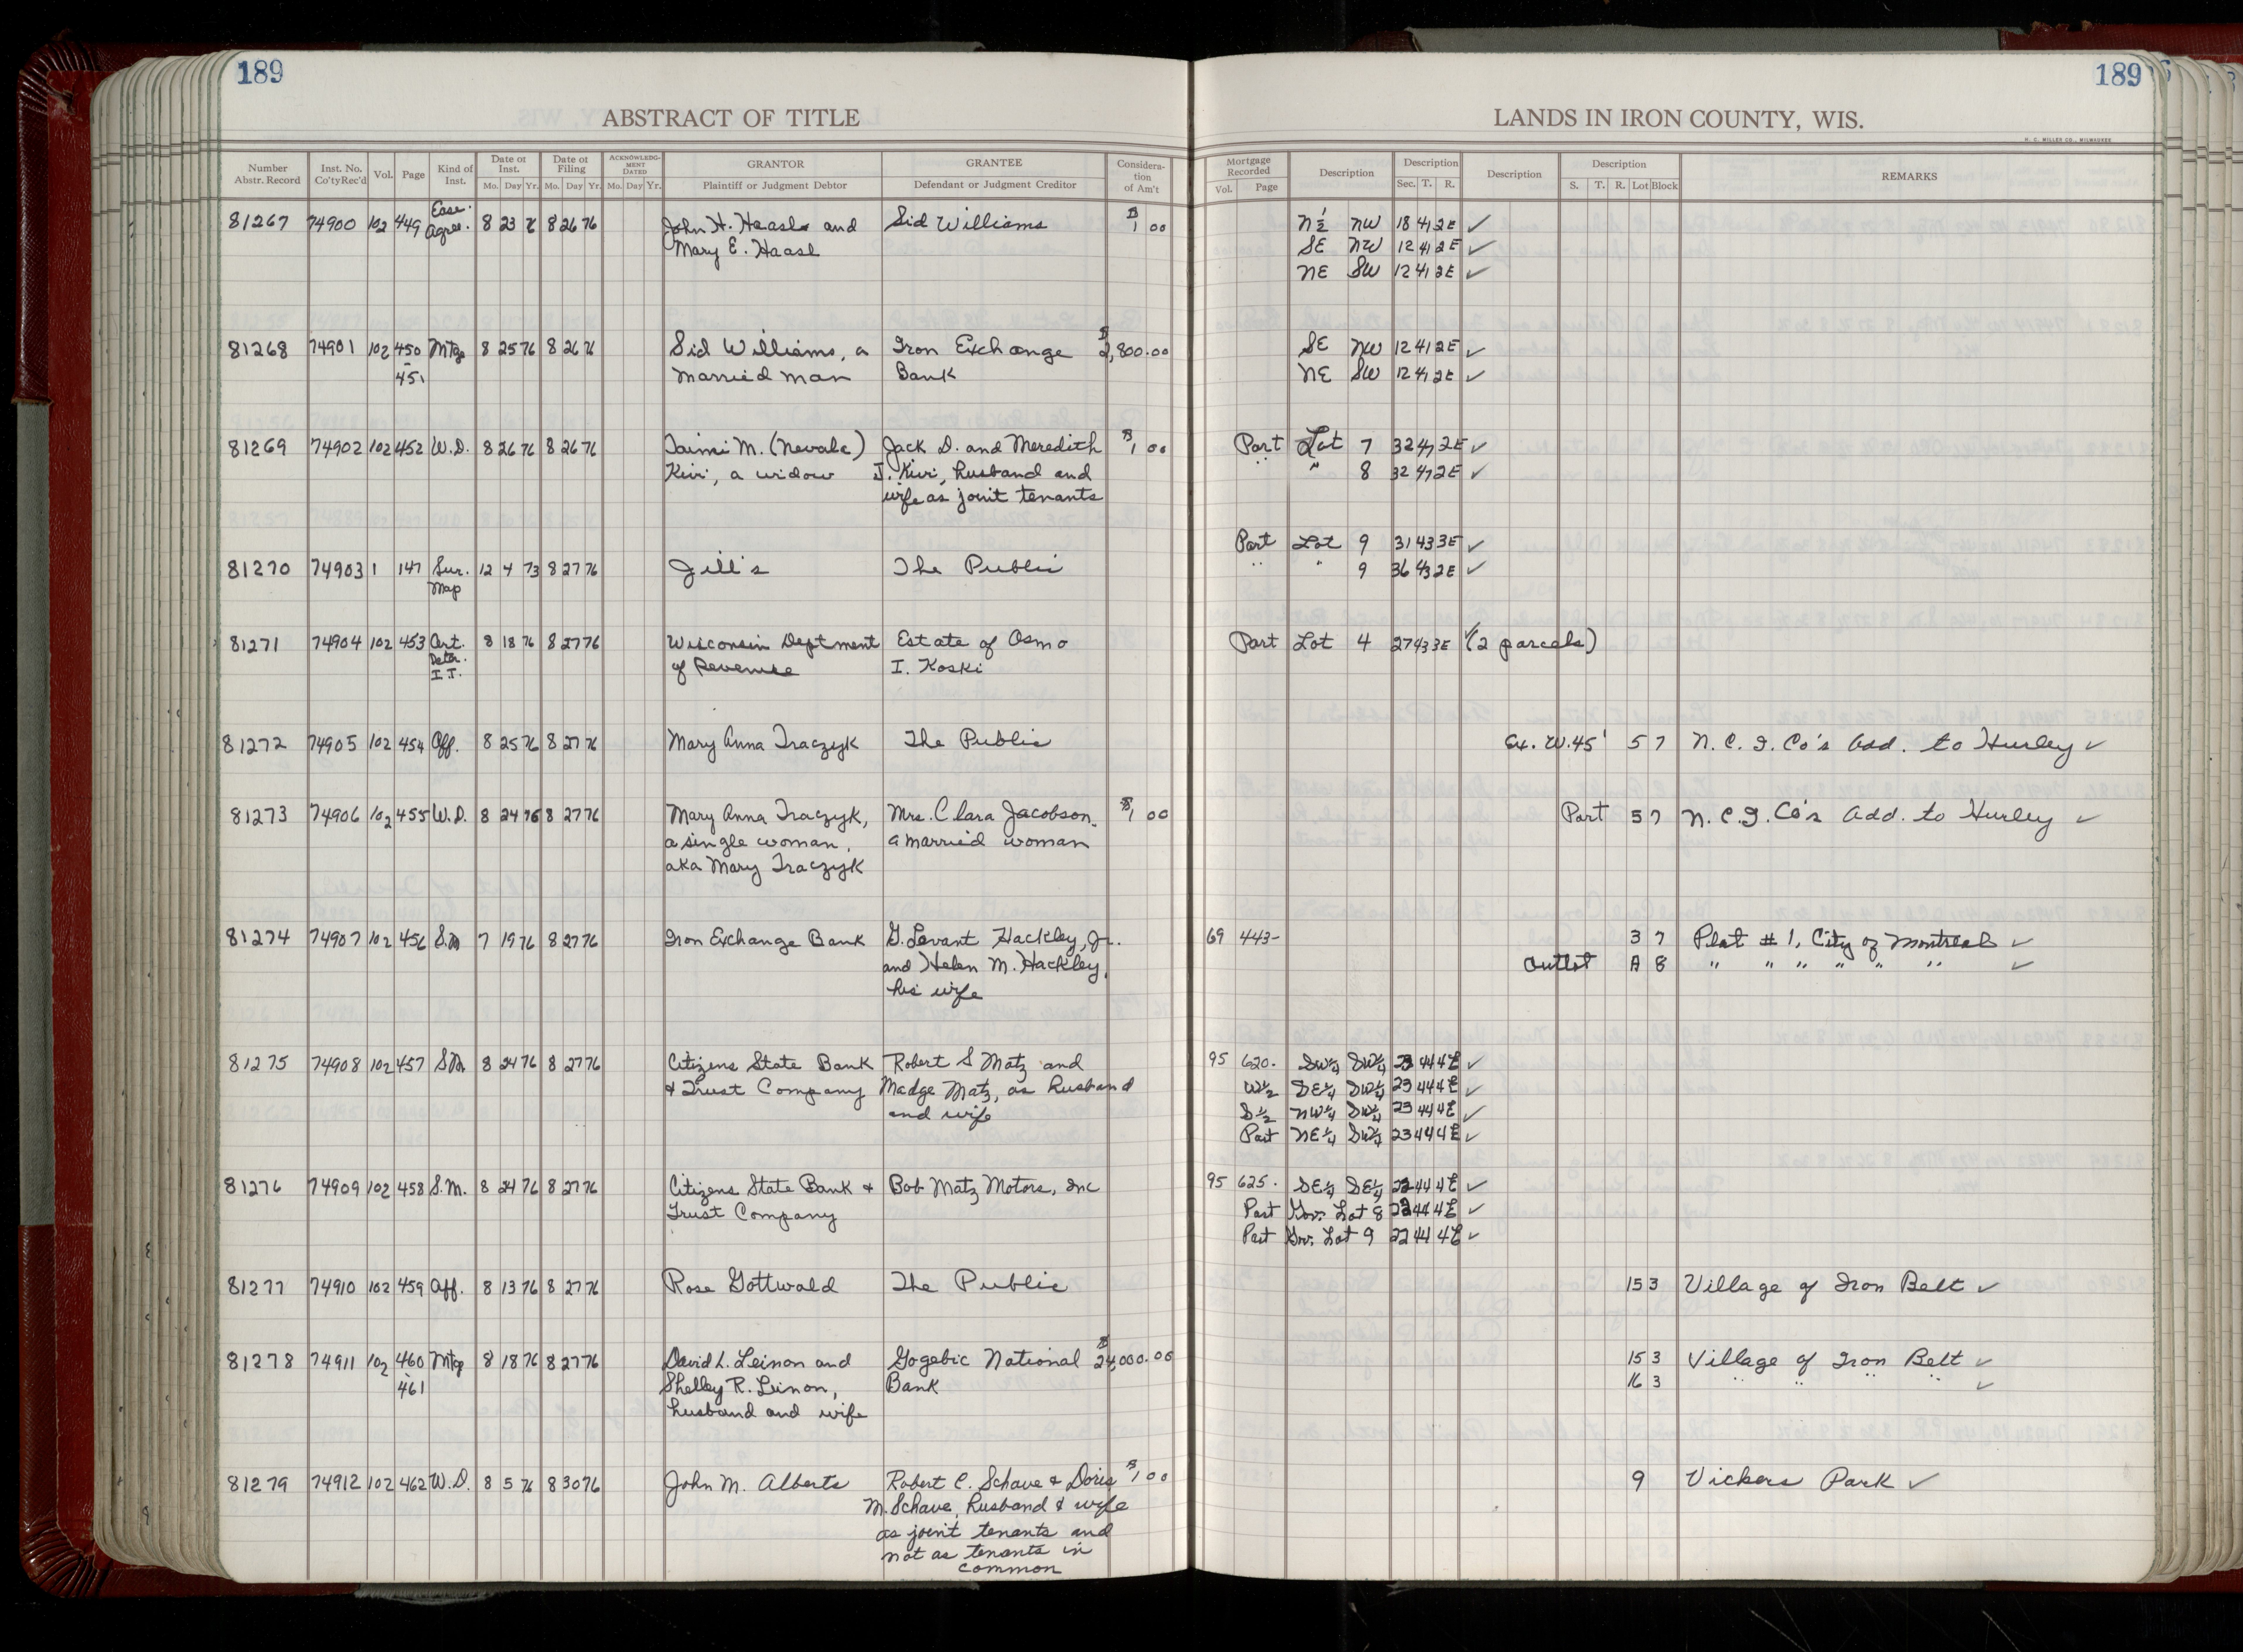 189
ABSTRACT OF TITLE
Number Abstr. Record Inst. No. Co'ty Rec'd Vol. Page Kind of Inst. Date of Inst. Mo. Day Yr. Date of Filing Mo. Day Yr. ACKNOWLEDGMENT DATED Mo. Day Yr. GRANTOR Plaintiff or Judgment Debtor GRANTEE Defendant or Judgment Creditor Consideration of Am't
Ease.
81267 74900 102 449 Agree. 8 23 76 8 26 76 John H. Haasl and Sid Williams $1 00
Mary E. Haasl
81268 74901 102 450 Mtge 8 25 76 8 26 76 Sid Williams, a Iron Exchange $2,800.00
- 451 married man Bank
81269 74902 102 452 W.D. 8 26 76 8 26 76 Taimi M. (Nevala) Jack D. and Meredith $1 00
Kivi, a widow J. Kivi, husband and
wife as joint tenants
81270 74903 1 147 Sur. 12 4 73 8 27 76 Jill's The Public
Map
81271 74904 102 453 Cert. 8 18 76 8 27 76 Wisconsin Deptment Estate of Osmo
Deter. of Revenue I. Koski
I.T.
81272 74905 102 454 Aff. 8 25 76 8 27 76 Mary Anna Traczyk The Public
81273 74906 102 455 W.D. 8 24 76 8 27 76 Mary Anna Traczyk, Mrs. Clara Jacobson, $1 00
a single woman, a married woman
aka Mary Traczyk
81274 74907 102 456 S.M 7 19 76 8 27 76 Iron Exchange Bank G. Levant Hackley, Jr.
and Helen M. Hackley,
his wife
81275 74908 102 457 SM 8 24 76 8 27 76 Citizens State Bank Robert S Matz and
& Trust Company Madge Matz, as husband
and wife
81276 74909 102 458 S.M. 8 24 76 8 27 76 Citizens State Bank & Bob Matz Motors, Inc
Trust Company
81277 74910 102 459 Aff. 8 13 76 8 27 76 Rose Gottwald The Public
81278 74911 102 460 Mtge 8 18 76 8 27 76 David L. Leinon and Gogebic National $24,000.00
- 461 Shelley R. Leinon, Bank
husband and wife
81279 74912 102 462 W.D. 8 5 76 8 30 76 John M. Alberts Robert C. Schave & Doris $1 00
M. Schave, husband & wife
as joint tenants and
not as tenants in
common
189
LANDS IN IRON COUNTY, WIS.
H. C. MILLER CO., MILWAUKEE
Mortgage Recorded Vol. Page Description Description Sec. T. R. Description Description S. T. R. Lot Block REMARKS
N½ NW 18 41 2E ✓
SE NW 12 41 2E ✓
NE SW 12 41 2E ✓
SE NW 12 41 2E ✓
NE SW 12 41 2E ✓
Part Lot 7 32 47 2E ✓
" " 8 32 47 2E ✓
Part Lot 9 31 43 3E ✓
" " 9 36 43 2E ✓
Part Lot 4 27 43 3E ✓ (2 parcels)
Ex. W.45' 5 7 N. C. I. Co's Add. to Hurley ✓
Part 5 7 N. C. I. Co's Add. to Hurley ✓
69 443- 3 7 Plat #1, City of Montreal ✓
Outlot A 8 " " " " " " ✓
95 620. SW¼ SW¼ 23 44 4E ✓
W½ SE¼ SW¼ 23 44 4E ✓
S½ NW¼ SW¼ 23 44 4E ✓
Part NE¼ SW¼ 23 44 4E ✓
95 625. SE¼ SE¼ 22 44 4E ✓
Part Gov. Lot 8 22 44 4E ✓
Part Gov. Lot 9 22 44 4E ✓
15 3 Village of Iron Belt ✓
15 3 Village of Iron Belt ✓
16 3 " " " " ✓
9 Vickers Park ✓